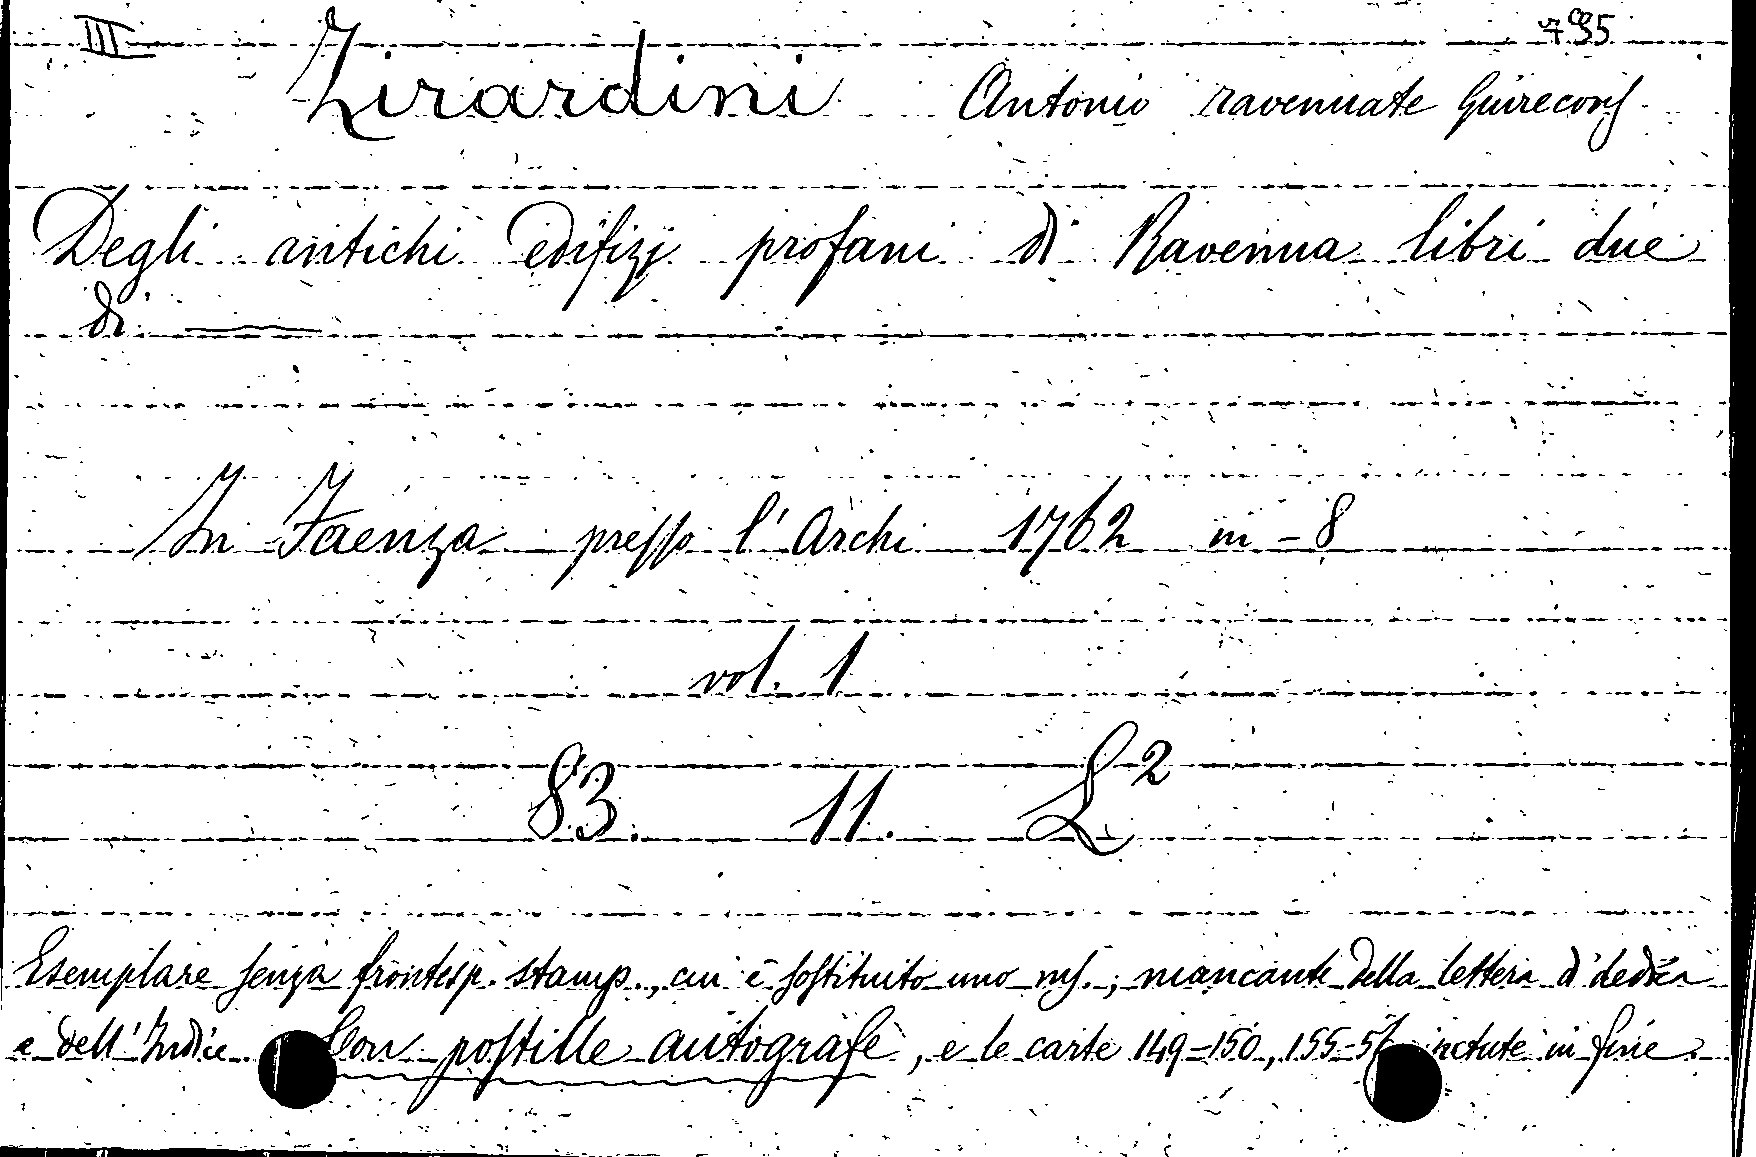 III 795
Zirardini Antonio ravennate Giureconſ.
Degli antichi edifizj profani di Ravenna libri due
di ———
In Faenza preſſo l'Archi 1762 in-8
vol. 1
83. 11. L²
Esemplare ſenza frontesp. stamp., cui è ſoſtituito uno mſ.; mancante della lettera di dedica
e dell'Indice. Con poſtille autografe, e le carte 149=150, 155-56 in fine.